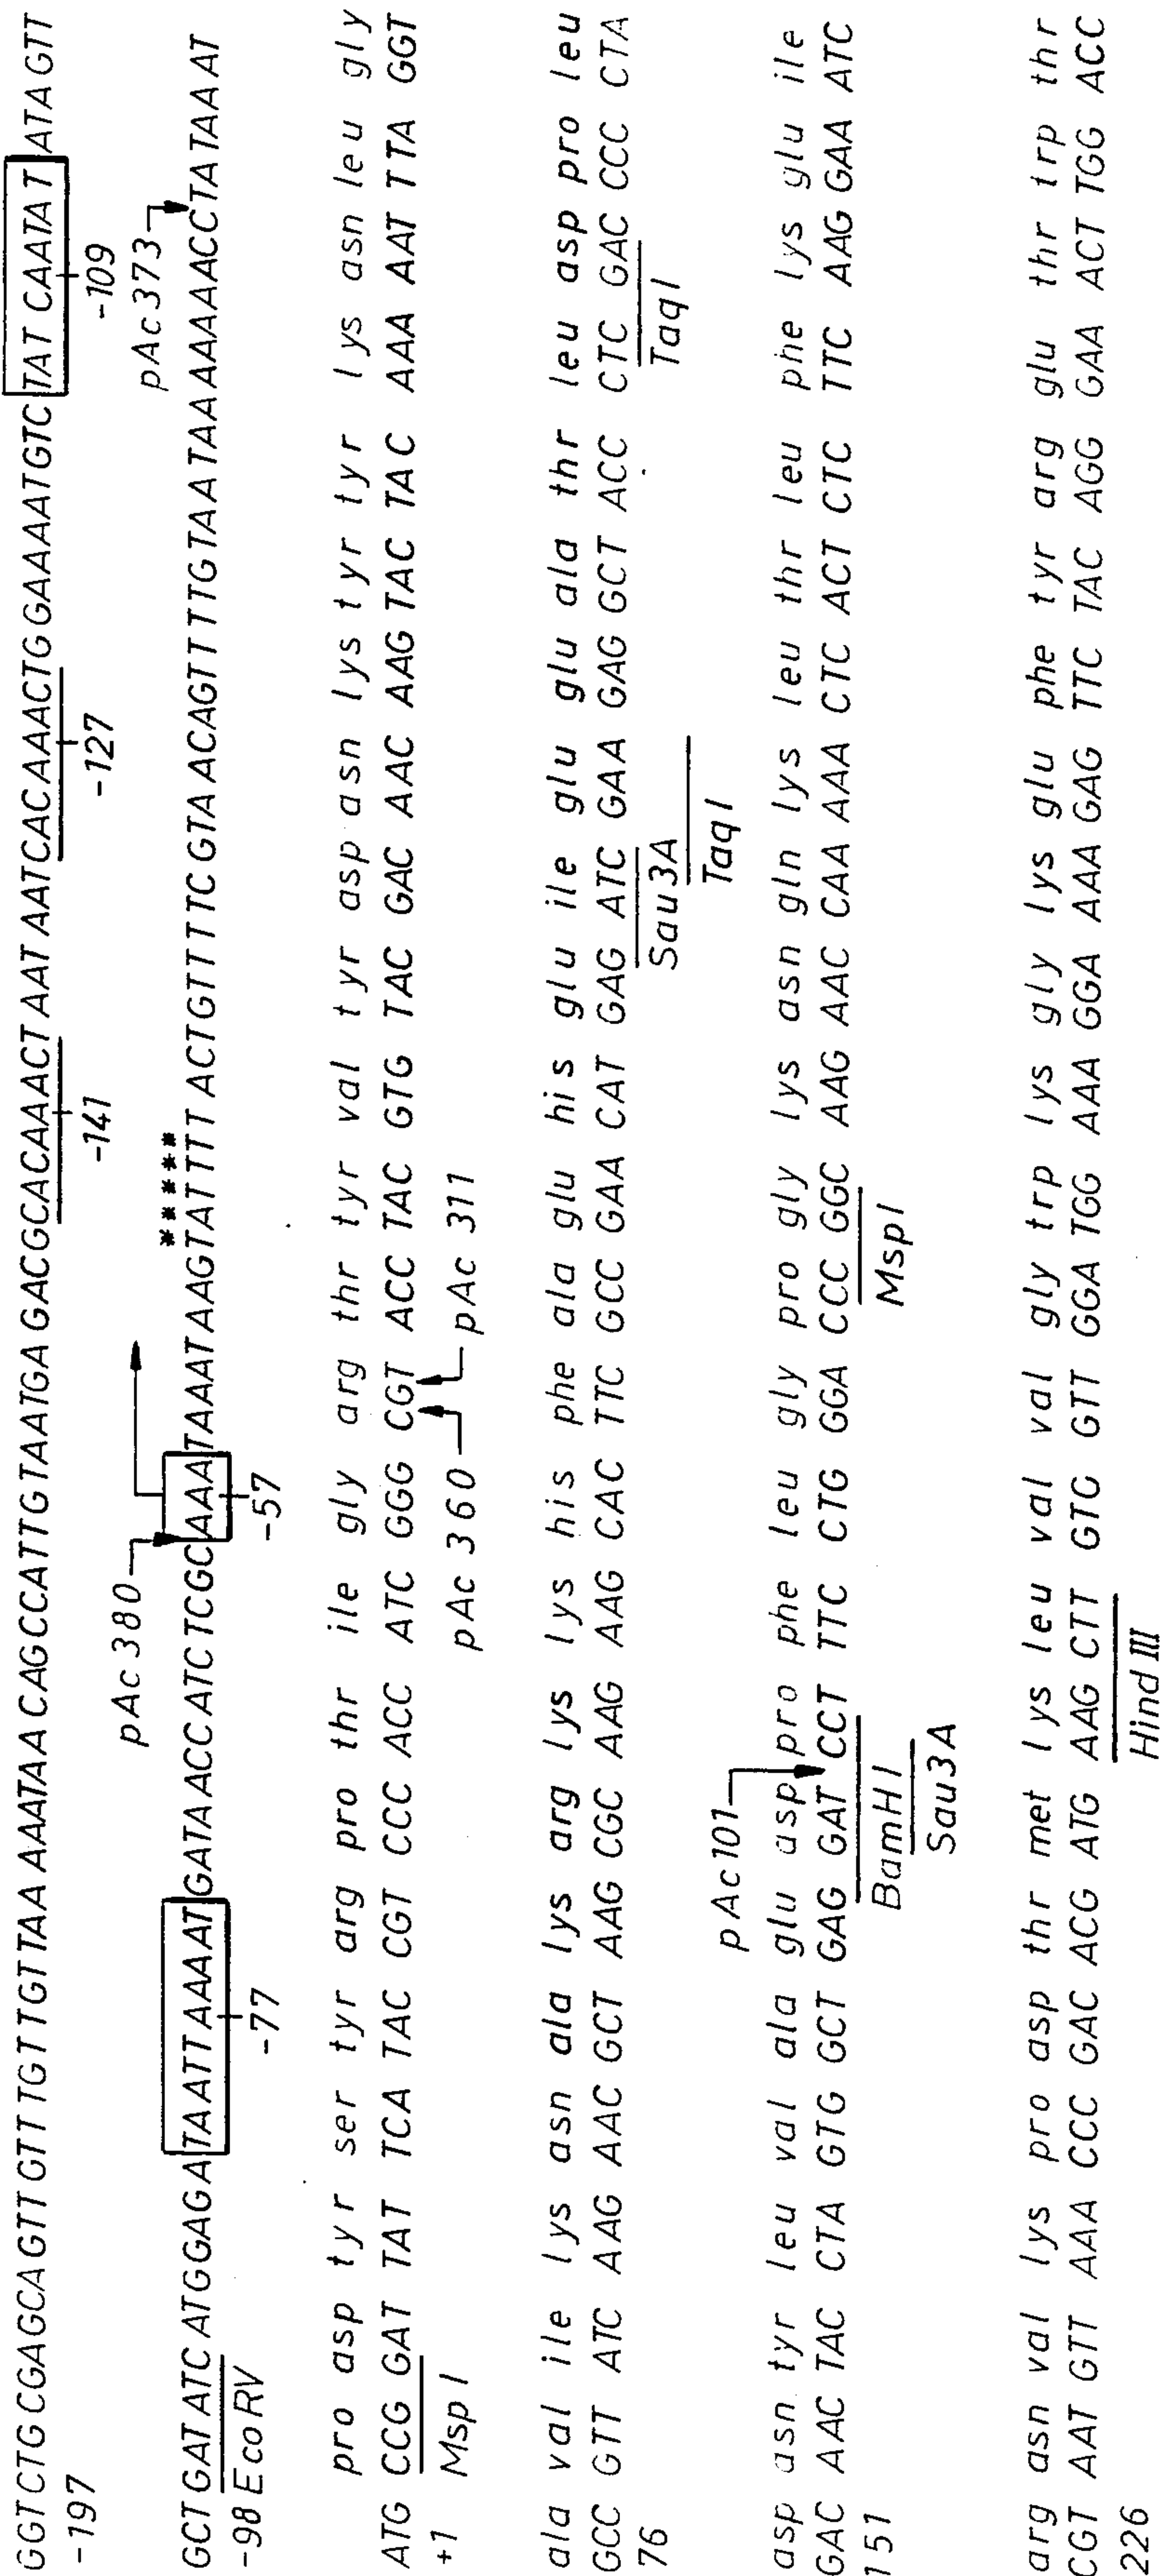 GGTCTGCGAGCAGTTGTTTGTTGTTAAAAATAACAGCCATTGTAATGAGACGCACAAACTAATAATCACAAACTGGAAATGTCTATCAATATATAGTT
-197 -141 -127 -109
pAc380 pAc373
*****
GCTGATATCATGGAGATAATTAAAATGATAACCATCTCGCAAATAAATAAGTATTTTACTGTTTTCGTAACAGTTTTGTAATAAAAAAACCTATAAAT
-98 EcoRV -77 -57
pro asp tyr ser tyr arg pro thr ile gly arg thr tyr val tyr asp asn lys tyr tyr lys asn leu gly
ATG CCG GAT TAT TCA TAC CGT CCC ACC ATC GGG CGT ACC TAC GTG TAC GAC AAC AAG TAC TAC AAA AAT TTA GGT
+1 MspI pAc360 pAc311
ala val ile lys asn ala lys arg lys lys his phe ala glu his glu ile glu glu ala thr leu asp pro leu
GCC GTT ATC AAG AAC GCT AAG CGC AAG AAG CAC TTC GCC GAA CAT GAG ATC GAA GAG GCT ACC CTC GAC CCC CTA
76 Sau3A TaqI
TaqI
pAc101
asp asn tyr leu val ala glu asp pro phe leu gly pro gly lys asn gln lys leu thr leu phe lys glu ile
GAC AAC TAC CTA GTG GCT GAG GAT CCT TTC CTG GGA CCC GGC AAG AAC CAA AAA CTC ACT CTC TTC AAG GAA ATC
151 BamHI MspI
Sau3A
arg asn val lys pro asp thr met lys leu val val gly trp lys gly lys glu phe tyr arg glu thr trp thr
CGT AAT GTT AAA CCC GAC ACG ATG AAG CTT GTC GTT GGA TGG AAA GGA AAA GAG TTC TAC AGG GAA ACT TGG ACC
226 Hind III